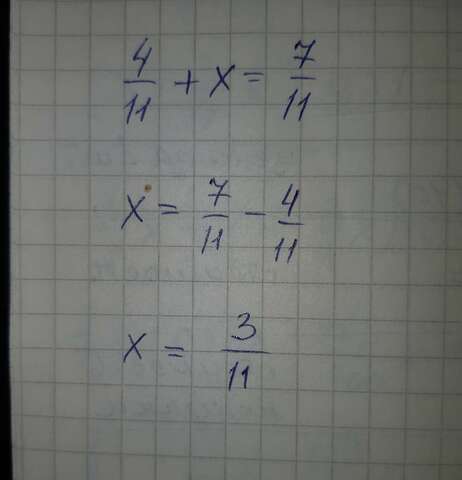 4/11 + x = 7/11
x = 7/11 − 4/11
x = 3/11